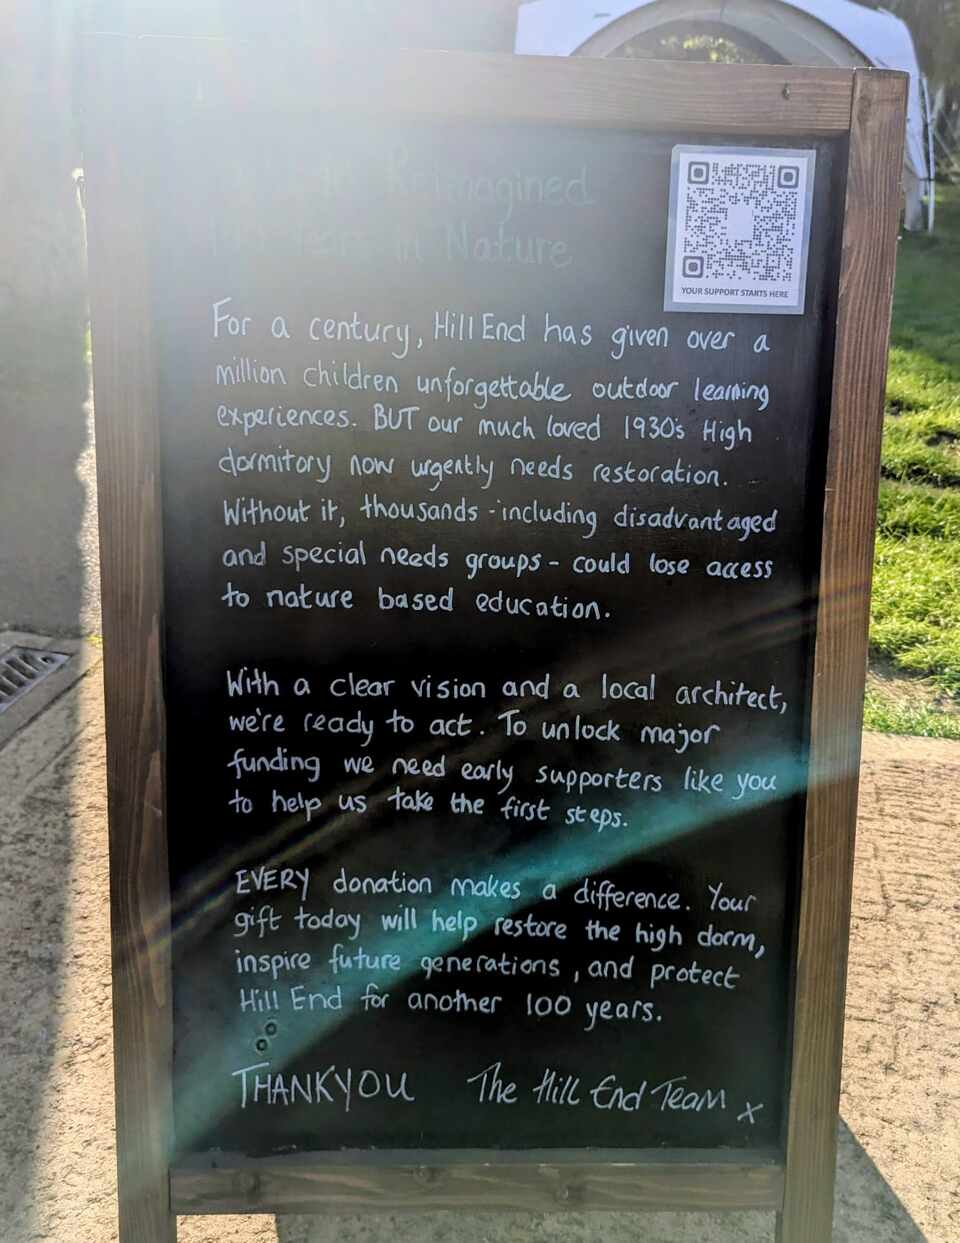 Reimagined
in Nature
YOUR SUPPORT STARTS HERE
For a century, Hill End has given over a
million children unforgettable outdoor learning
experiences. BUT our much loved 1930s High
dormitory now urgently needs restoration.
Without it, thousands - including disadvantaged
and special needs groups - could lose access
to nature based education.
With a clear vision and a local architect,
we're ready to act. To unlock major
funding we need early supporters like you
to help us take the first steps.
EVERY donation makes a difference. Your
gift today will help restore the high dorm,
inspire future generations, and protect
Hill End for another 100 years.
THANKYOU The Hill End Team x